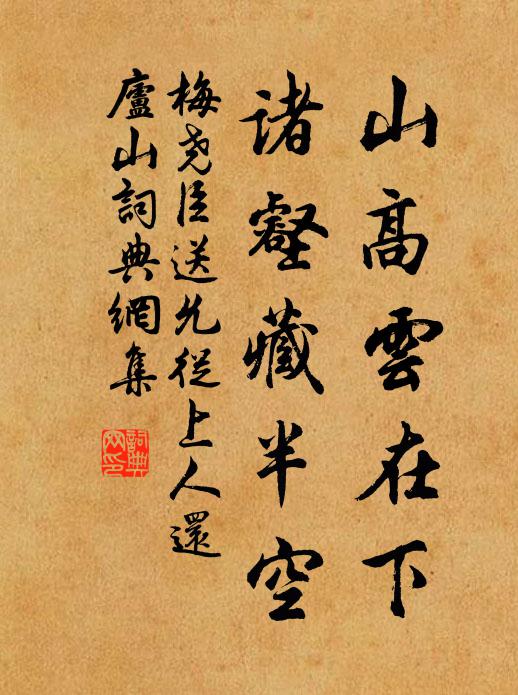 山高雲在下
諸壑藏半空
梅堯臣送允從上人還
廬山詞典網集
詞典
网印